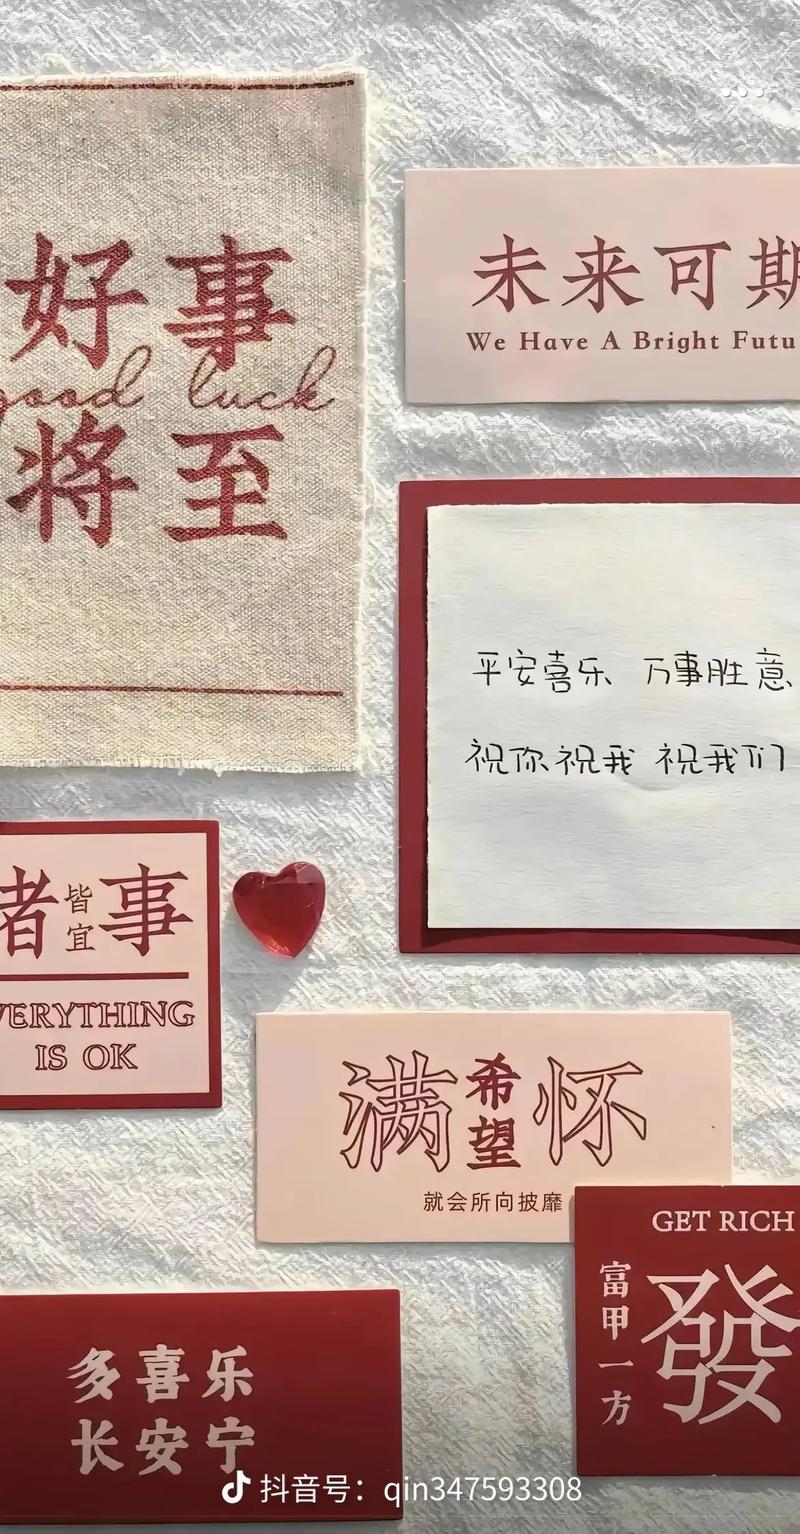 好事
good luck
将至
未来可期
We Have A Bright Futu
平安喜乐 万事胜意
祝你祝我 祝我们
诸事
皆宜
VERYTHING
IS OK
满希望怀
就会所向披靡
GET RICH
富甲一方
發
多喜乐
长安宁
抖音号：qin347593308